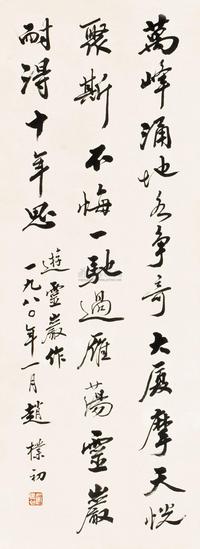 萬峰涌地各爭奇大廈摩天恍
聚斯不悔一馳過雁蕩靈巖
耐得十年思
遊靈巖作
一九八〇年一月趙樸初